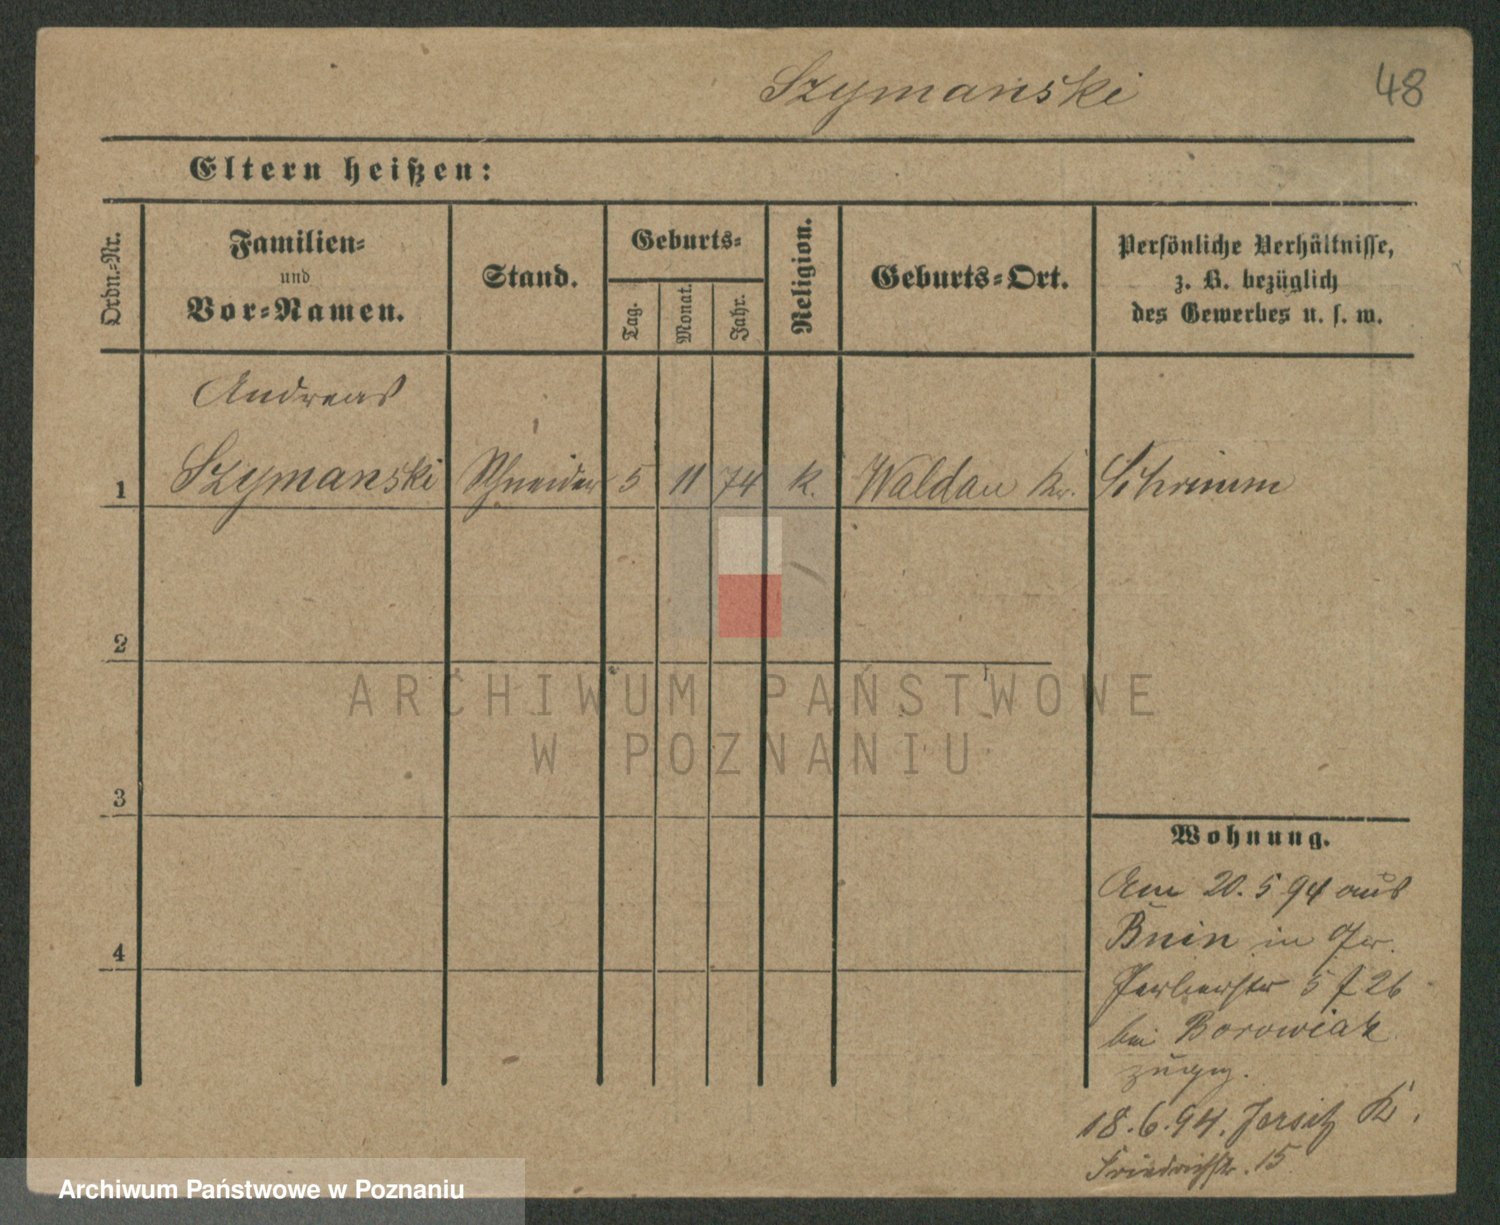 Szymański
48
Eltern heißen:
Ordn.-Nr.
Familien-
und
Vor-Namen.
Stand.
Geburts-
Tag.
Monat.
Jahr.
Religion.
Geburts-Ort.
Persönliche Verhältnisse,
z. B. bezüglich
des Gewerbes u. s. w.
Andreas
1 Szymanski Schneider 5 11 74 k. Waldau Kr. Schrimm
2
ARCHIWUM PAŃSTWOWE
W POZNANIU
3
Wohnung.
Am 20. 5 94 aus
Bnin in
Gerberstr 5 26
bei Borowiak
zugez.
18.6.94. Jersitz K.
Friedrichstr. 15
4
Archiwum Państwowe w Poznaniu